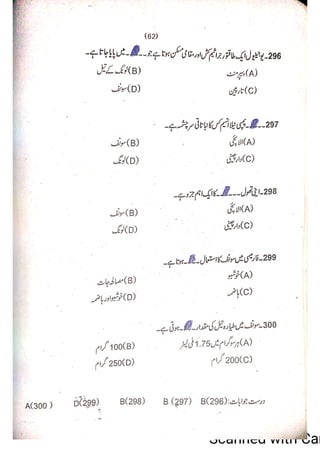 (62)
296-یوجینول ایک طاقتور جراثیم کش اور مقامی مسکن ہوتا ہے جو۔۔۔ میں پایا جاتا ہے۔
(A) پیپرمنٹ (B) لونگ کے تیل
(C) تارپین (D) سونف
297-۔۔۔ پمپی نیلا انیسم کس کا نباتاتی سرچشمہ ہے۔
(A) الائچی (B) سونف
(C) دارچینی (D) لونگ
298-اینی تھول۔۔۔ کا ایک اہم جزو ہے۔
(A) الائچی (B) سونف
(C) دارچینی (D) لونگ
299-فارمیسی میں سونف کا استعمال۔۔۔ ہوتا ہے۔
(A) خوشبو (B) مصالحہ جات
(C) ہاضم (D) خوشبو اور ہاضم
300-سونف میں طیارہ تیل کی مقدار۔۔۔ ہوتی ہے۔
(A) ہر سو گرام میں 1.75 ملی لیٹر (B) 100 گرام
(C) 200 گرام (D) 250 گرام
درست جوابات: B(296) B (297) B(298) D(299) A(300 )
Scanned with Ca